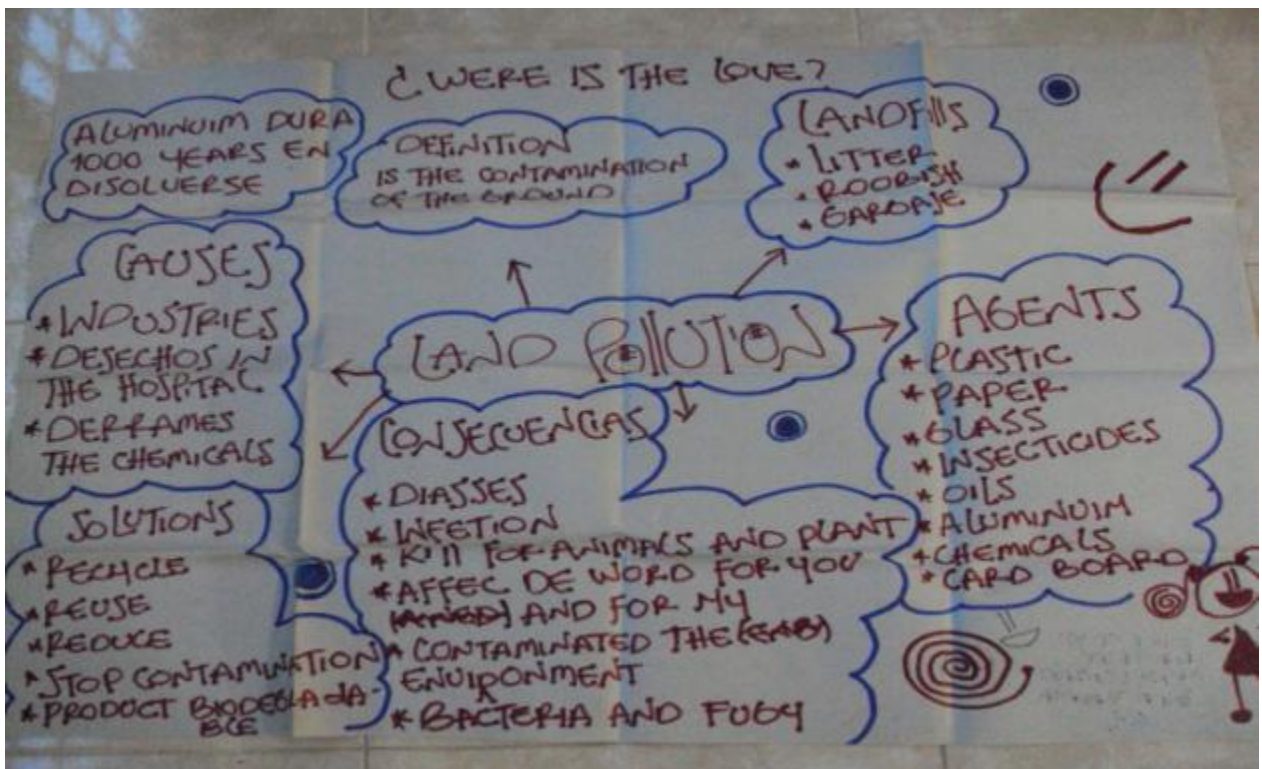 ¿WERE IS THE LOVE?
ALUMINUIM DURA
1000 YEARS EN
DISOLVERSE
DEFINITION
IS THE CONTAMINATION
OF THE GROUND
LANDFIllS
* LITTER
* ROOBISH
* GARBAJE
CAUSES
* INDUSTRIES
* DESECHOS IN
THE HOSPITAL
* DERRAMES
THE CHEMICALS
LAND POllUTION
AGENTS
* PLASTIC
* PAPER
* GLASS
* INSECTICIDES
* OILS
* ALUMINUIM
* CHEMICALS
* CARD BOARD
CONSECUENCIAS
* DIASSES
* INFETION
* KIll FOR ANIMALS AND PLANT
* AFFEC DE WORD FOR YOU
AND FOR MY
* CONTAMINATED THE
ENVIRONMENT
* BACTERIA AND FUGY
SOLUTIONS
* RECYCLE
* REUSE
* REDUCE
* STOP CONTAMINATION
* PRODUCT BIODEGLADA-
BLE